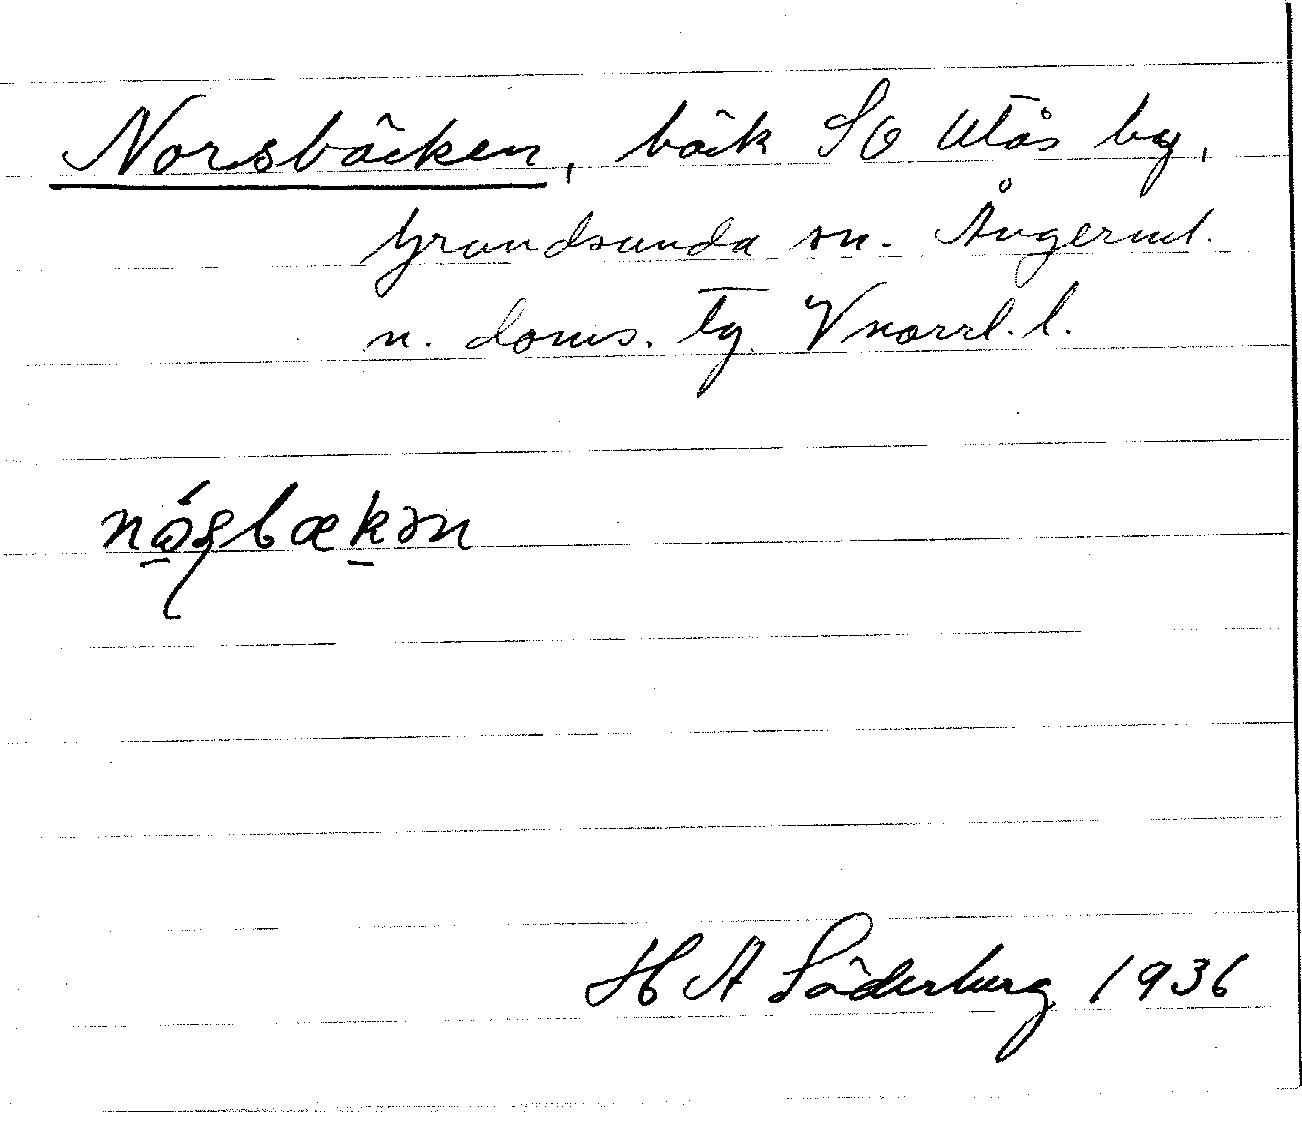 Norsbäcken, bäck SO Utås by,
Grundsunda sn. Ångerml.
n. doms. tg. Vnorrl. l.
nǫ́ʂbækən
H A Söderberg 1936